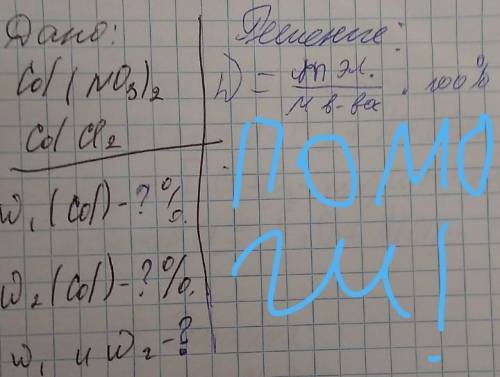 Дано:
Col(NO3)2
Col Cl2
W1 (Col) - ? %.
W2 (Col) - ? %.
W1 и W2 - ?
Решение:
W = Mn эл. / M в-ва · 100%
ПОМО
ГИ!